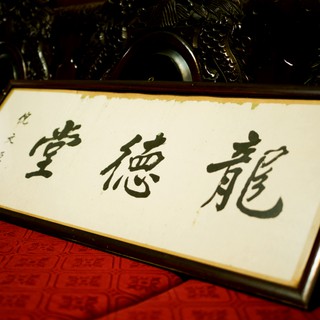 龍德堂